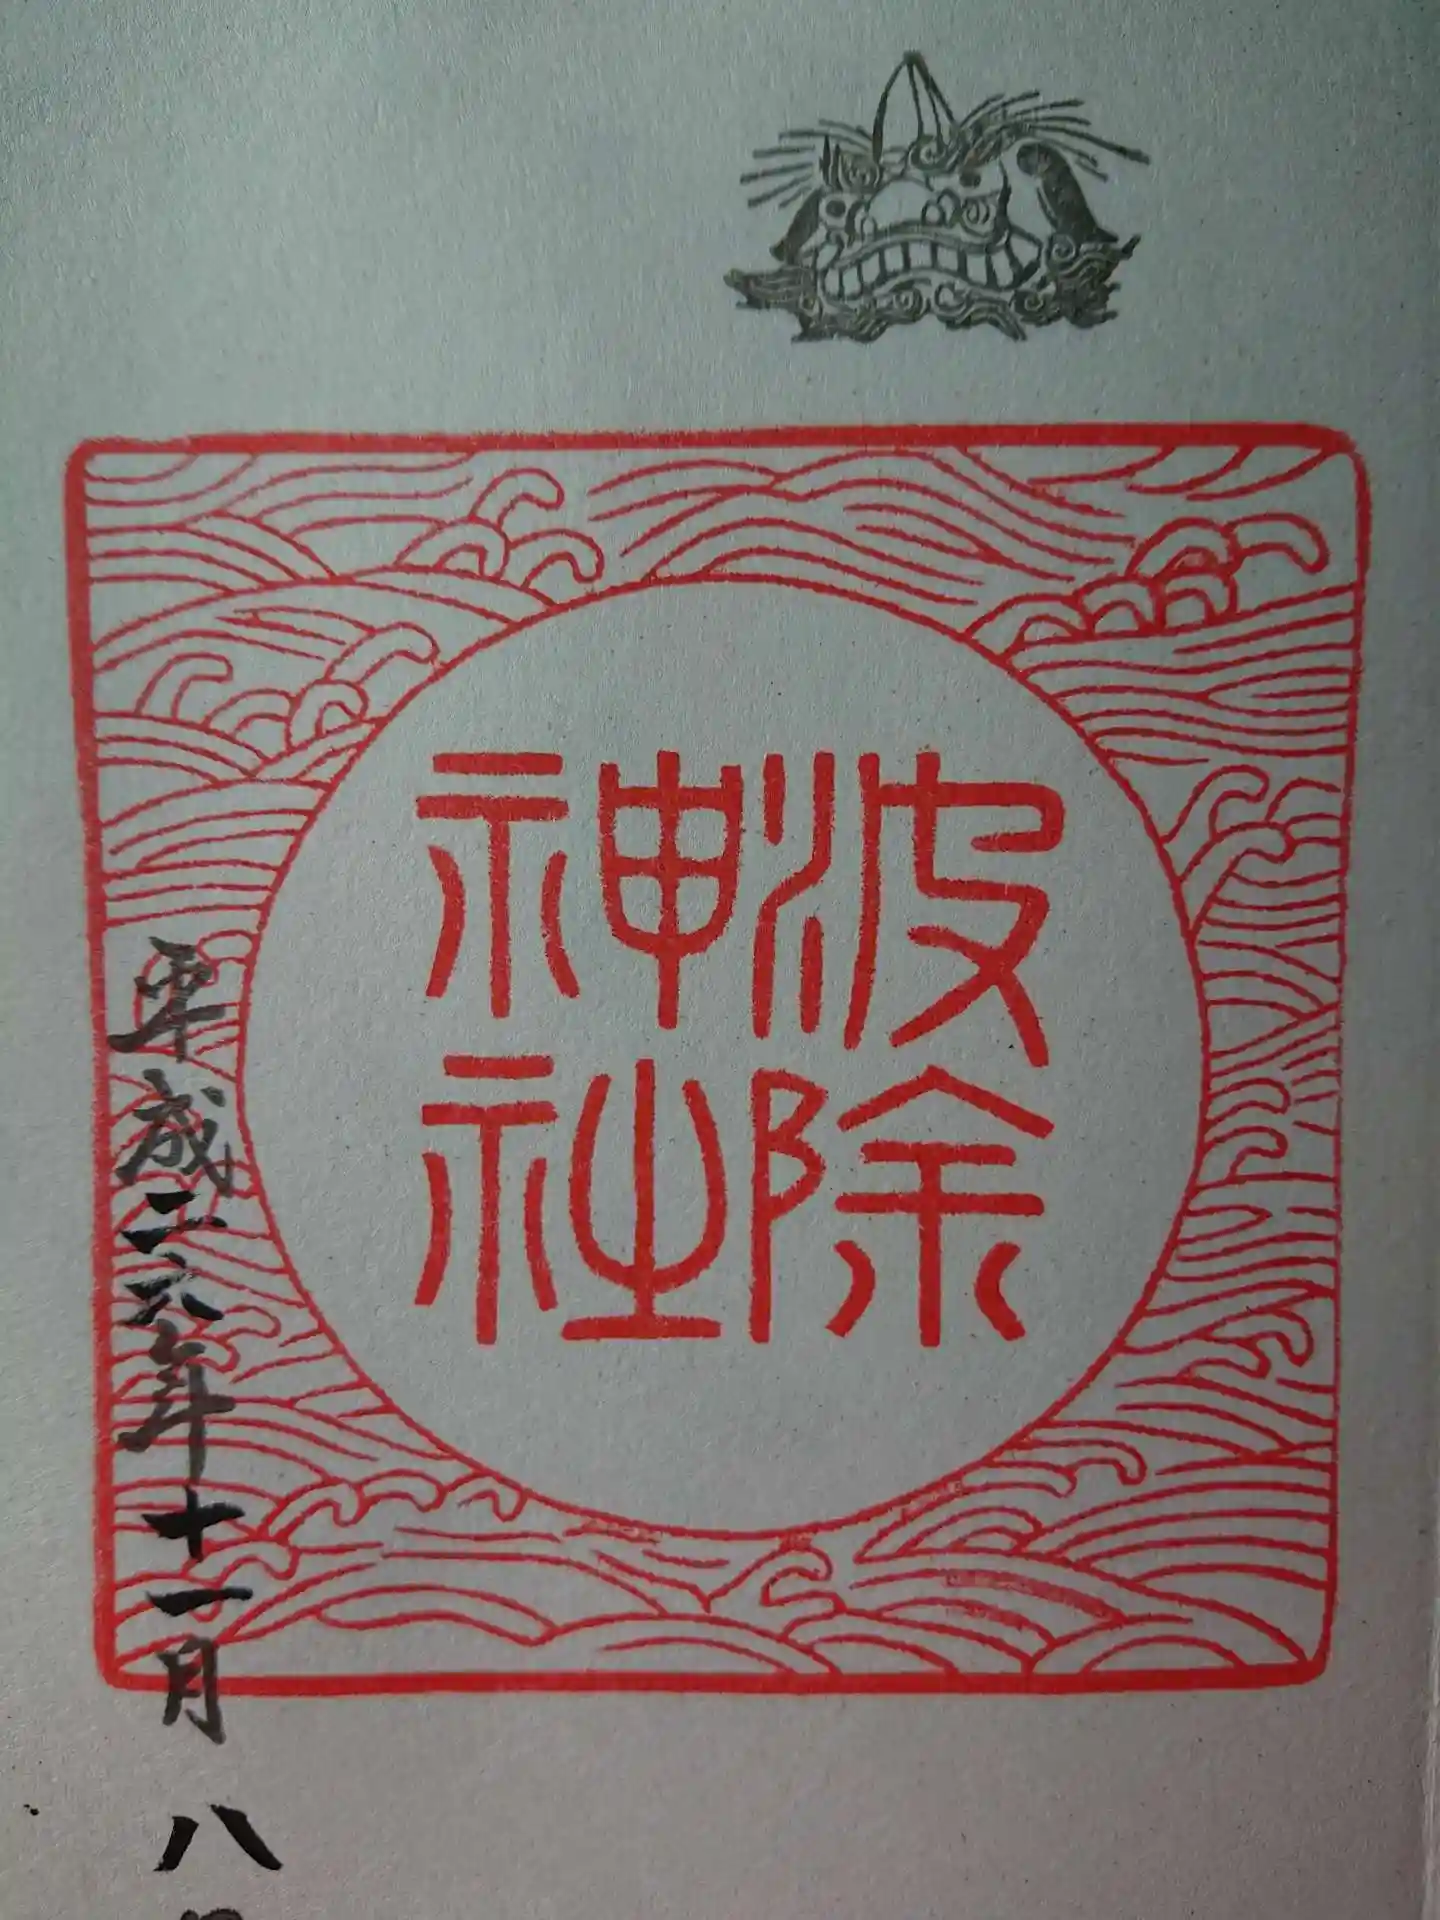 波除
神社
平成二六年十一月八日